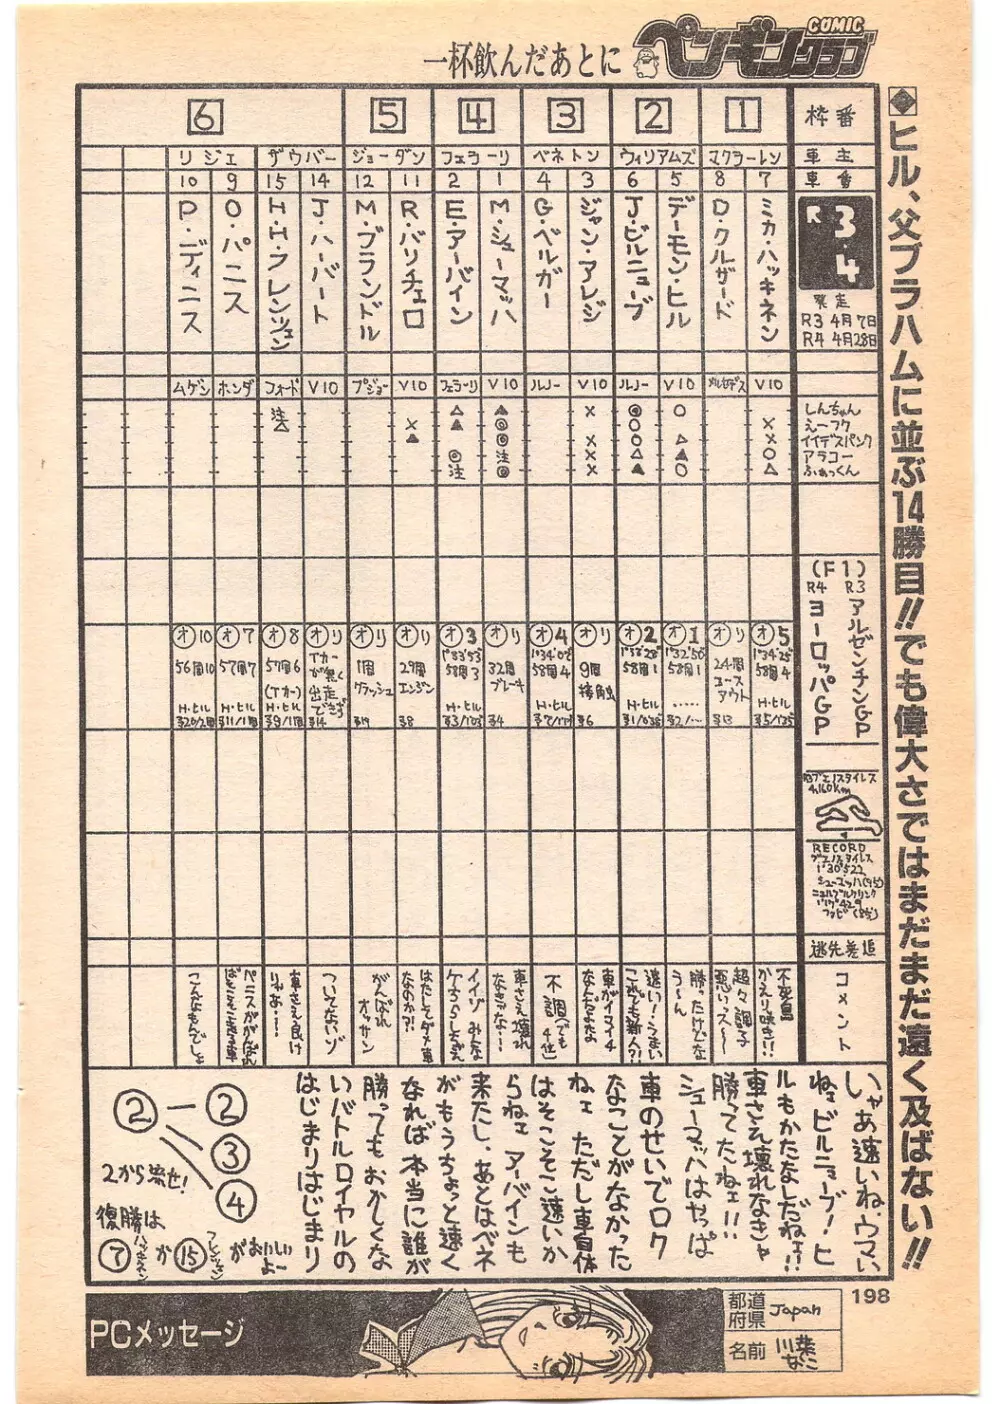 一杯飲んだあとに
COMIC
ペンギンクラブ
◆ヒル、父ブラハムに並ぶ14勝目!!でも偉大さではまだまだ遠く及ばない!!
枠番 1 2 3 4 5 6
車主 マクラーレン ウィリアムズ ベネトン フェラーリ ジョーダン ザウバー リジェ
車番 7 8 5 6 3 4 1 2 11 12 14 15 9 10
R 3・4
R3 4月7日
R4 4月28日
ミカ・ハッキネン
D・クルザード
デーモン・ヒル
J・ビルニューブ
ジャン・アレジ
G・ベルガー
M・シューマッハ
E・アーバイン
R・バリチェロ
M・ブランドル
J・ハーバート
H・H・フレンツェン
O・パニス
P・ディニス
V10 メルセデス V10 ルノー V10 ルノー V10 フェラーリ V10 プジョー V10 フォード ホンダ ムゲン
しんちゃん ○ ◎ × ▲ △ 注
えーフク × ○ ◎ ▲ × △
イイデスパンク × △ ○ × ◎ ▲
アラコー ○ ▲ △ × 注 ◎
ふぁっくん △ ○ ▲ × ◎ 注
(F1)
R3 アルゼンチンGP
R4 ヨーロッパGP
オ5 1'34"25 58周4 H・ヒル
オリ 24周 コースアウト
オ1 1°32'50 58周1 ……
オ2 58周1 H・ヒル
オリ 9周 接触
オ4 58周4 H・ヒル
オリ 32周 ブレーキ
オ3 1°33'53 58周3 H・ヒル
オリ 29周 エンジン
オリ 1周 クラッシュ
オリ Tカーが無く出走できず
オ8 57周6 (Tカー) H・ヒル
オ7 57周7 H・ヒル
オ10 56周10 H・ヒル
R3ブエノスタイレス
4,160Km
RECORD
ブエノスタイレス
1'30"522
シューマッハ(95)
ニュルブルクリンク
逃先差追
コメント
不死鳥かえり咲き!!
超々調子悪いス〜〜
勝ったけどなう〜ん
速い!うまいこれでも新人?!
車がイマイチなんだよな
不調(でも4位)
車さえ壊れなきゃな…
イイゾみんなケちらしちゃえ
はたしてダメ車なのか?!
がんばれオッサン
ついてないゾ
車さえ良けりゃあ……
こんなもんでしょ
いやあ速いね、ウマい
ねェビルニューブ!ヒ
ルもかたなしだねェ!!
車さえ壊れなきゃ
勝ってたねェ!!
シューマッハはやっぱ
車のせいでロク
なことがなかった
ねェ ただし車自体
はそこそこ速いか
らねェアーバインも
来たし、あとはベネ
がもうちょっと速く
なれば本当に誰が
勝ってもおかしくな
いバトルロイヤルの
はじまりはじまり
②―②
③
④
2から流せ!
復勝は
⑦ハッキネンか⑮フレンツェンがおいしいよー
198
PCメッセージ
都道府県 Japan
名前